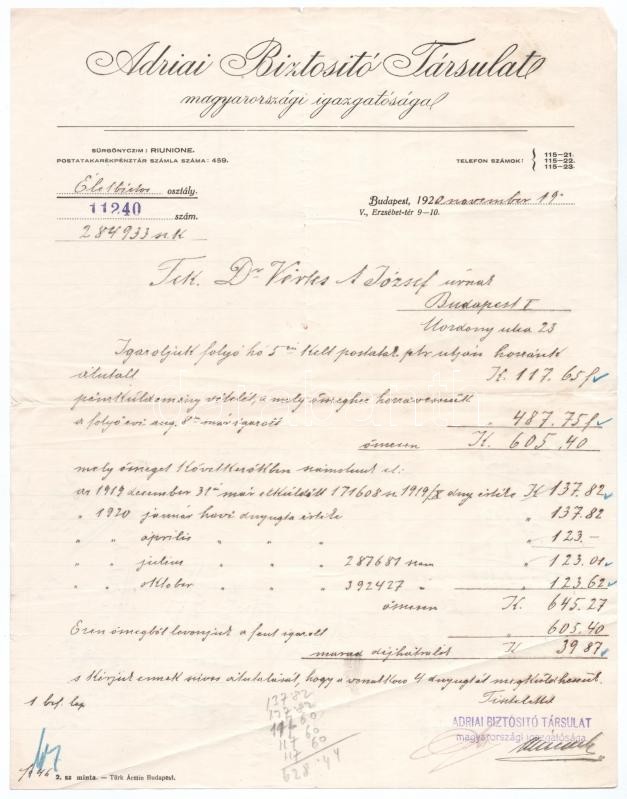 Adriai Biztositó Társulat
magyarországi igazgatósága
SÜRGÖNYCZIM: RIUNIONE.
POSTATAKARÉKPÉNZTÁR SZÁMLA SZÁMA: 459.
TELEFON SZÁMOK:
115–21.
115–22.
115–23.
osztály.
11240 szám.
284933
Budapest, 1920 november 19.
V., Erzsébet-tér 9–10.
Tek. Dr Vértes A József úrnak
Budapest I
utca 23
Igazoljuk folyó hó 5 én kelt postatak. ptr. utján hozzánk
átutalt K. 117.65 f
pénzküldemény vételét, a mely összeghez hozzávesszük
a folyó évi aug. 8 már igazolt " 487.75 f
összesen K. 605.40
mely összeget következőkben számolunk el:
az 1919 december 31 már elküldött 171608 sz 1919/X dny értéke K 137.82
" 1920 január havi dnyugta értéke " 137.82
" " április " " " 123.–
" " julius " " 287681 szám " 123.01
" " oktober " " 392427 " " 123.62
összesen K. 645.27
Ezen összegből levonjuk a fent igazolt " 605.40
marad díjhátralék K 39.87
s kérjük ennek szives átutalását, hogy a vonatkozó 4 dnyugtát megküldhessük.
Tisztelettel
1 bef. lap
137.82
137.82
117.60
117 60
117 60
628.44
ADRIAI BIZTOSITÓ TÁRSULAT
magyarországi igazgatósága
2. sz minta. – Türk Ármin Budapest.